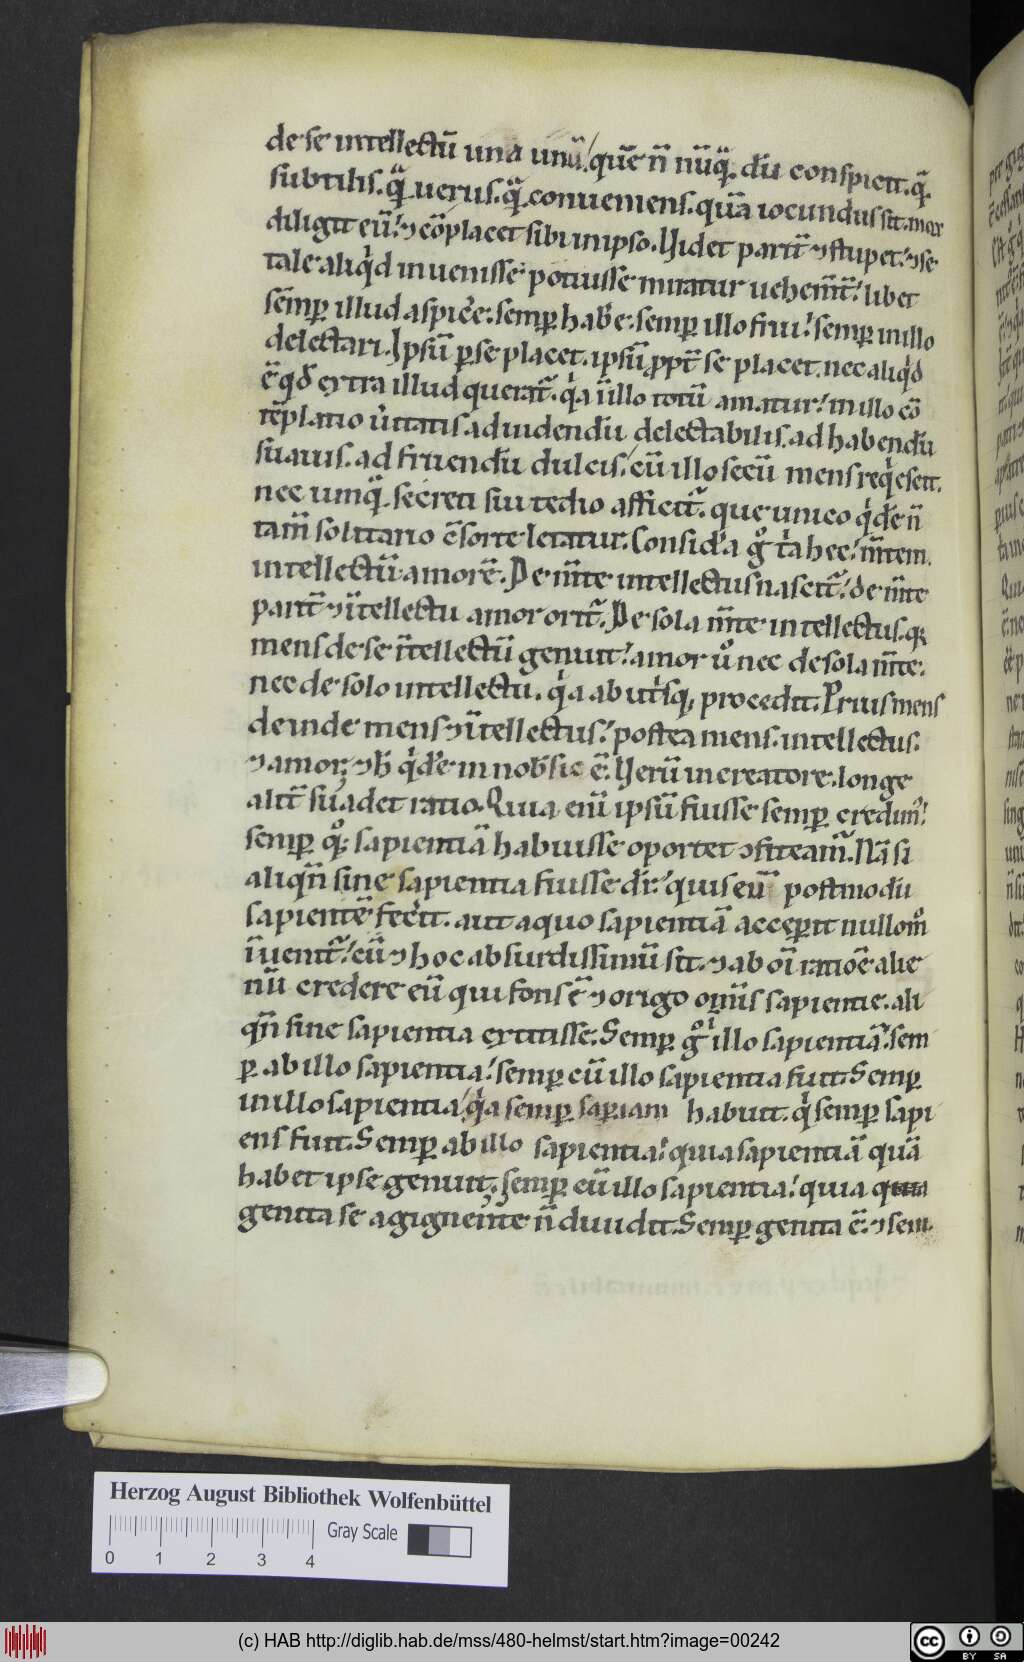 de se intellectū una unū. quē n̄ nūq̄. dū conspicit. q̄
subtilis. q̄ uerus. q̄ conueniens. quā iocundus sit. mox
diligit eū. ⁊ cōplacet sibi in ipso. Videt parit̄ ⁊ stupet. ⁊ se
tale aliq̇d inuenisse potuisse miratur uehem̄t̄. libet
sēmꝑ illud aspicꝰe. semꝑ habꝰe. semꝑ illo frui. semꝑ in illo
delectari. Ipsū ꝑ se placet. ipsū ꝓpt̄ se placet. nec aliq̇d
ē qđ extra illud querat̄. q̇a ī illo totū amatur. in illo cō
tēplatio ūitatis. ad uidendū delectabilis. ad habendū
suauis. ad fruendū dulcis. cū illo secū mens req̇escit.
nec umq̄ secreti sui tedio afficit̄. que unico q̇dē n̄
tam̄ solitario c̄sorte letatur. Considꝰa gͦ tͥa hec. m̄tem
intellectū amorē. De m̄te intellectus nascit̄. de m̄te
parit̄ ⁊ ītellectu amor orit̄. De sola m̄te intellectus. qꝫ
mens de se ītellectū genuit. amor uͦ nec de sola m̄te.
nec de solo intellectu. q̇a ab utͥsqꝫ procedit. Prius mens
deinde mens ⁊ ītellectus. postea mens. intellectus.
⁊ amor. ⁊ h̄ q̇dē in nobis sic ē. Verū in creatore longe
alit̄ suadet ratio. Quia eni ipsū fuisse semꝑ credim̄.
semꝑ qͦꝫ sapientiā habuisse oportet ꝯfiteam̄. Nā si
aliqn̄ sine sapientia fuisse dr̄. quis eū postmodū
sapientē fecꝰit. aut a quo sapientiā acceꝑit nullomͦ
īuenit̄. cū ⁊ hoc absurdissimū sit. ⁊ ab oī ratiōe alie
nū credere eū qui fons ē ⁊ origo om̄is sapientie. ali
qn̄ sine sapientia extitisse. Semꝑ gͦ ī illo sapientia. sem
ꝑ ab illo sapientia. semꝑ cū illo sapientia fuit. Semꝑ
in illo sapientia q̇a semꝑ sapiam habuit. q̇ semꝑ sapi
ens fuit. Semꝑ ab illo sapientia. quia sapientiā quā
habet ipse genuit. semꝑ cū illo sapientia. quia
genita se a gignente n̄ diuidit. Semꝑ genita ē. ⁊ sem
Herzog August Bibliothek Wolfenbüttel
Gray Scale
0 1 2 3 4
(c) HAB http://diglib.hab.de/mss/480-helmst/start.htm?image=00242
cc BY SA